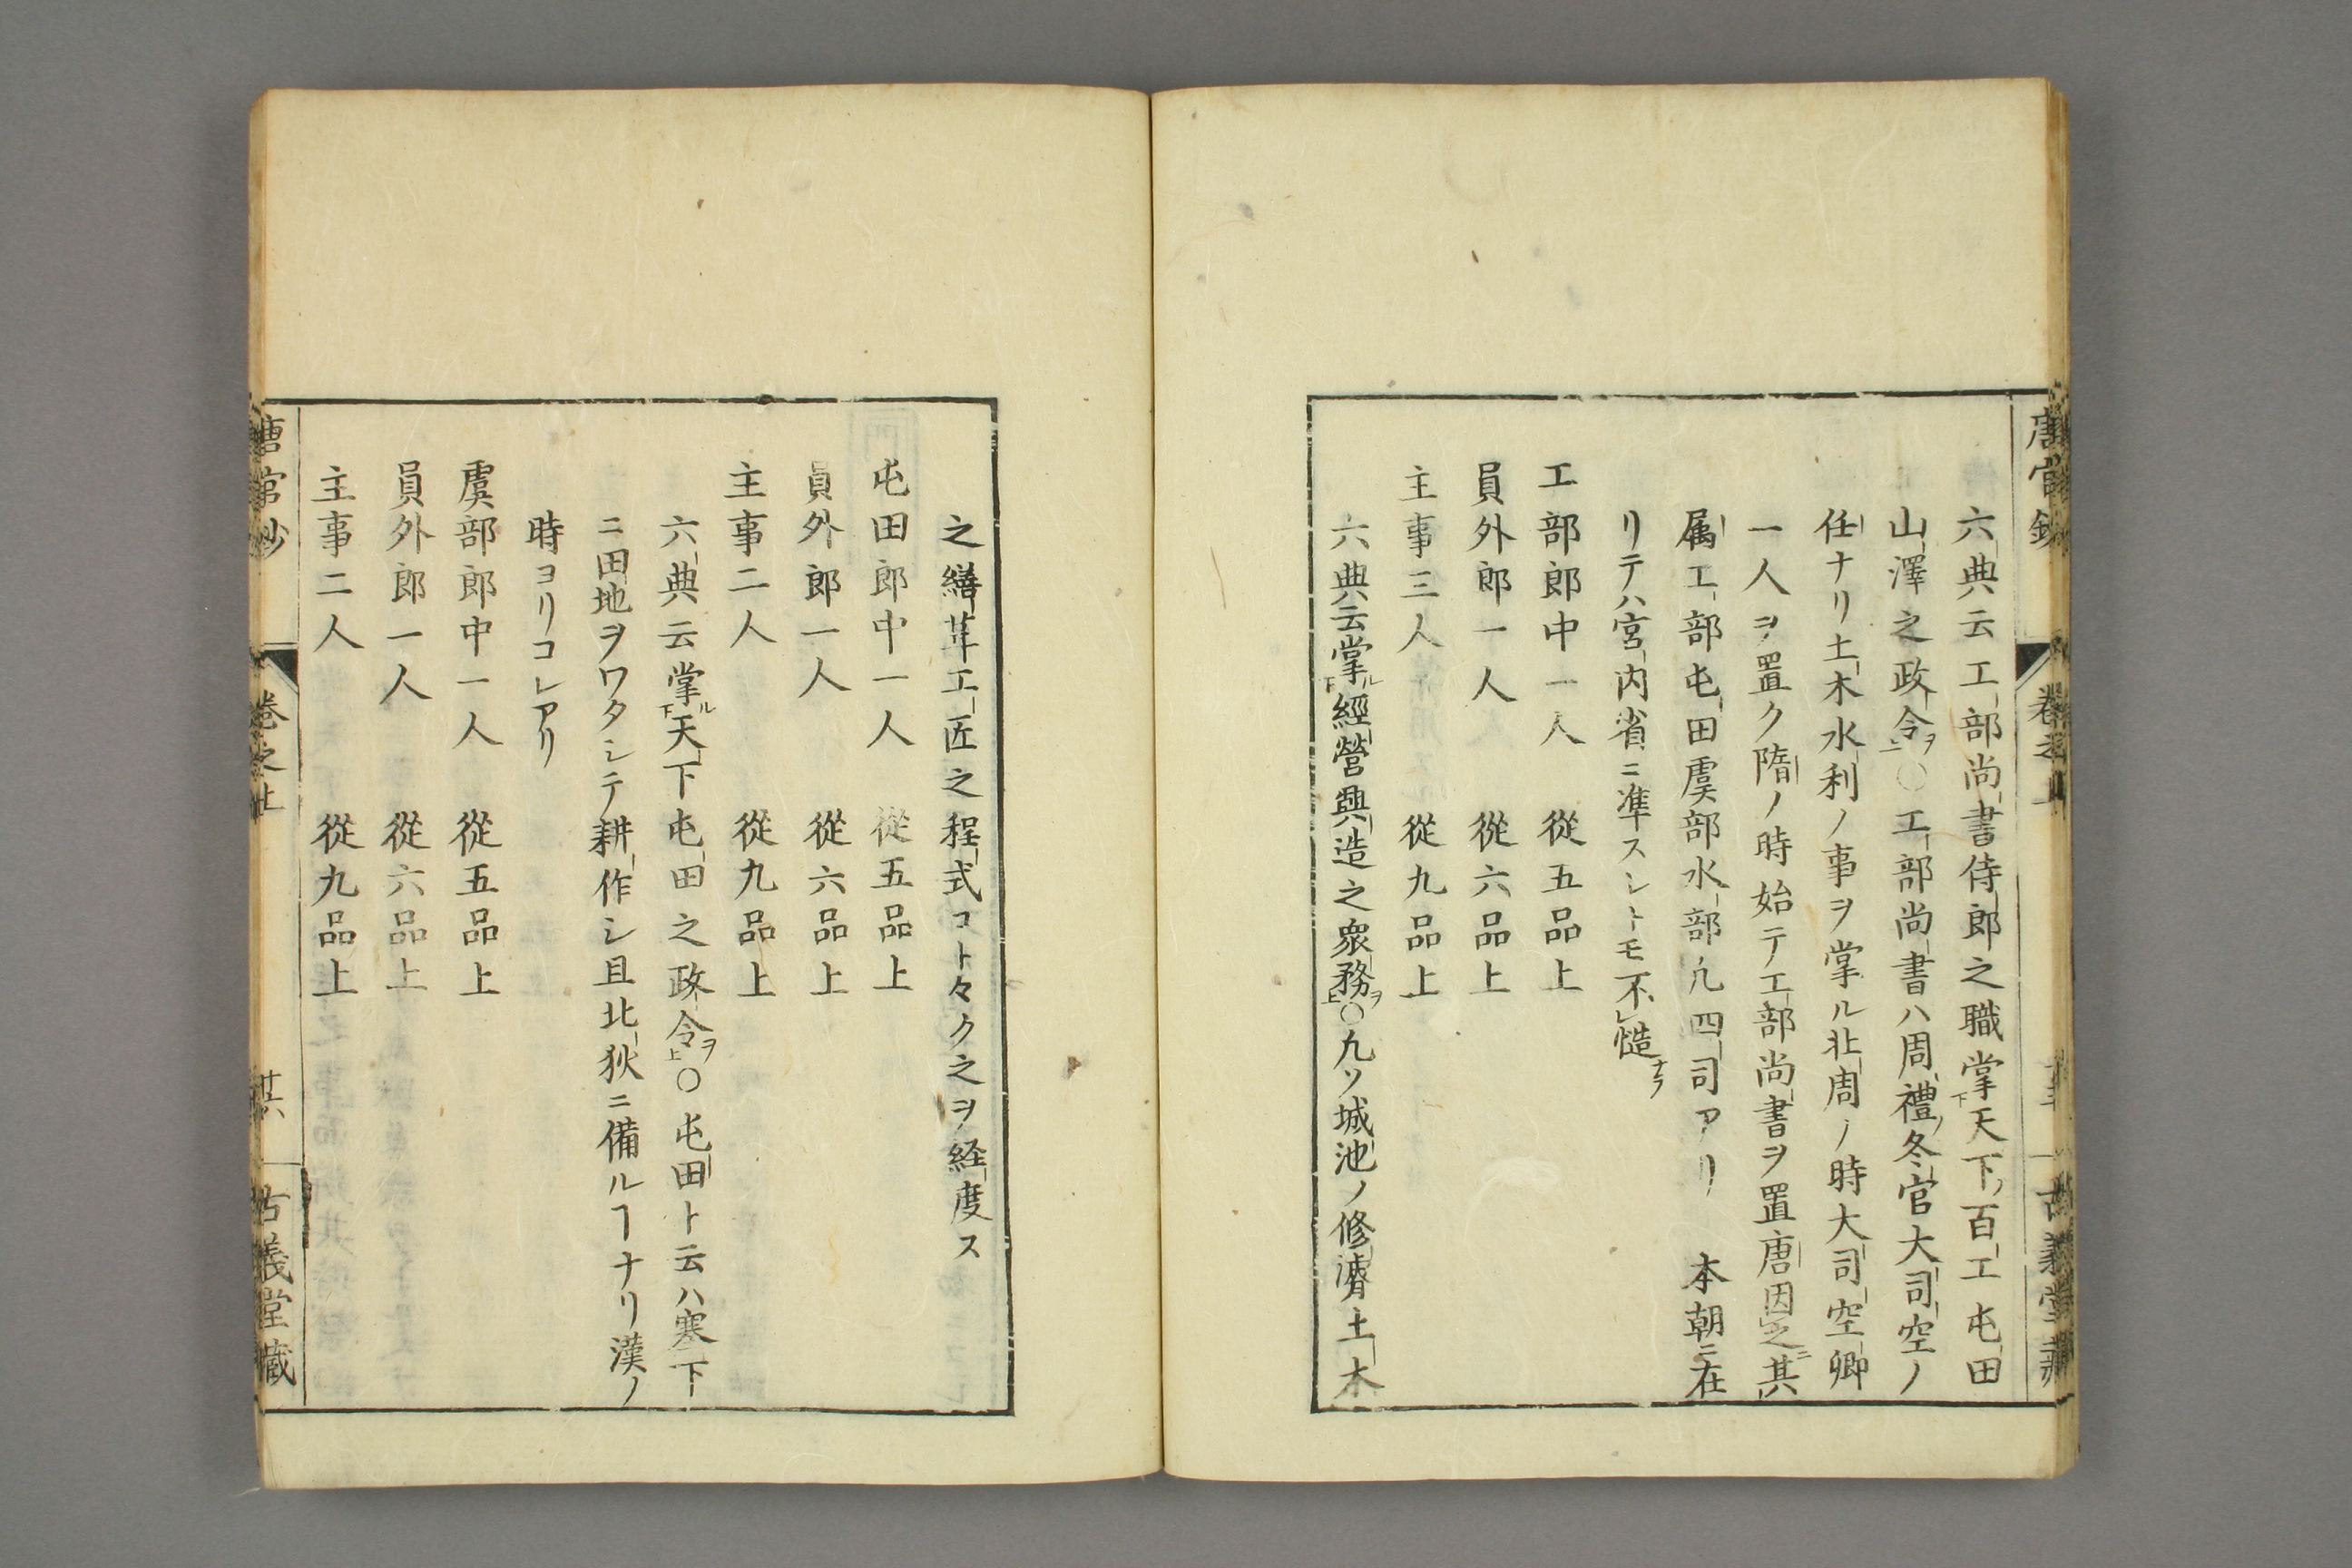 唐官鈔 卷之上 古義堂藏
六典云工部尚書侍郎之職掌下天下ノ百工屯田
山澤之政令ヲ二〇工部尚書ハ周禮ノ冬官大司空ノ
任ナリ土木水利ノ事ヲ掌ル北周ノ時大司空卿
一人ヲ置ク隋ノ時始テ工部尚書ヲ置唐因之ニ其
属工部屯田虞部水部凢四司アリ 本朝ニ在
リテハ宮内省ニ準スレトモ不レ慥ナラ
工部郎中一人 從五品上
員外郎一人 從六品上
主事三人 從九品上
六典云掌ル下經營興造之衆務ヲ上〇凢ソ城池ノ修濬土木
之繕茸工匠之程式コト々ク之ヲ経度ス
屯田郎中一人 從五品上
員外郎一人 從六品上
主事二人 從九品上
六典云掌ル下天下屯田之政令ヲ上〇屯田ト云ハ塞下
ニ田地ヲワタシテ耕作シ且北狄ニ備ルヿナリ漢ノ
時ヨリコレアリ
虞部郎中一人 從五品上
員外郎一人 從六品上
主事二人 從九品上
唐官鈔 卷之上 廿六 古義堂藏